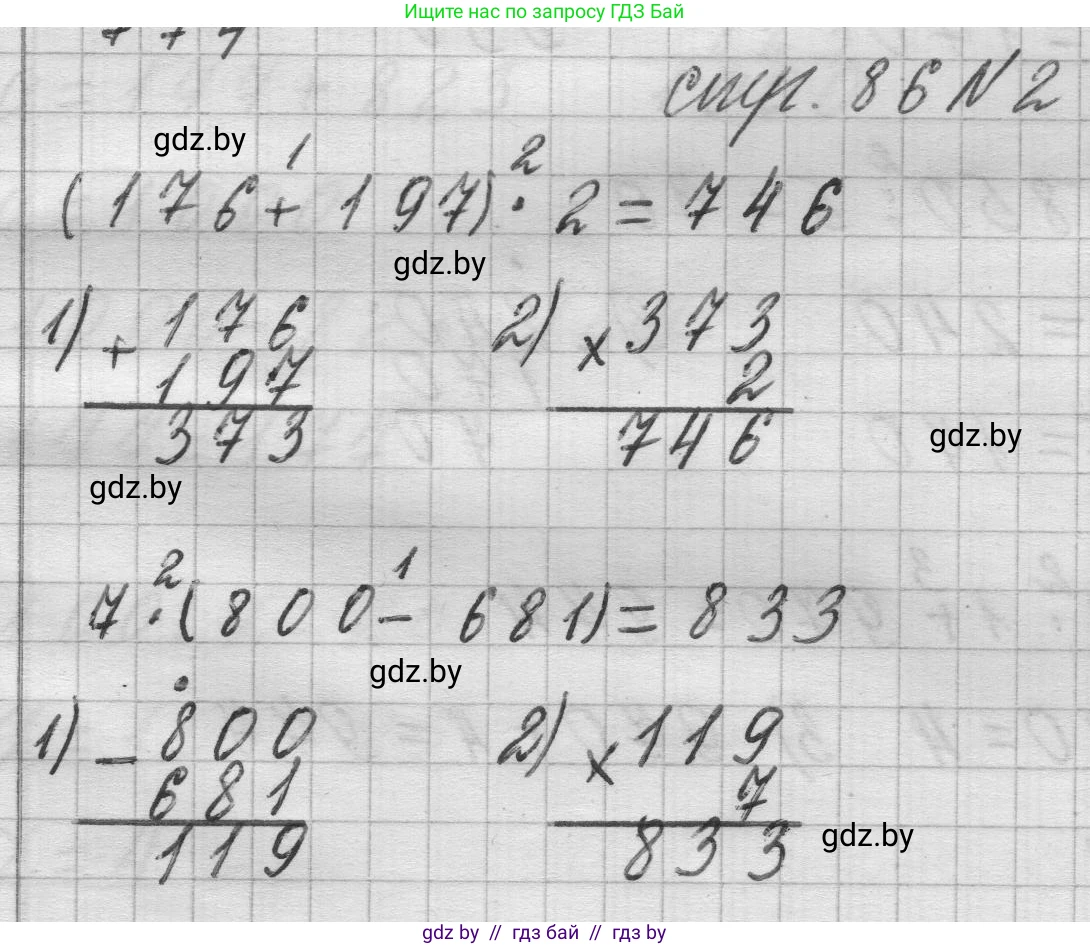 Ищите нас по запросу ГДЗ Бай
стр. 86 N 2
gdz.by
1 2
(176 + 197) · 2 = 746
gdz.by
1) + 176 2) × 373
197 2
373 746
gdz.by
gdz.by
2 1
7 · (800 - 681) = 833
gdz.by
1) - 800 2) × 119
681 7
119 833
gdz.by
gdz.by // гдз бай // гдз by